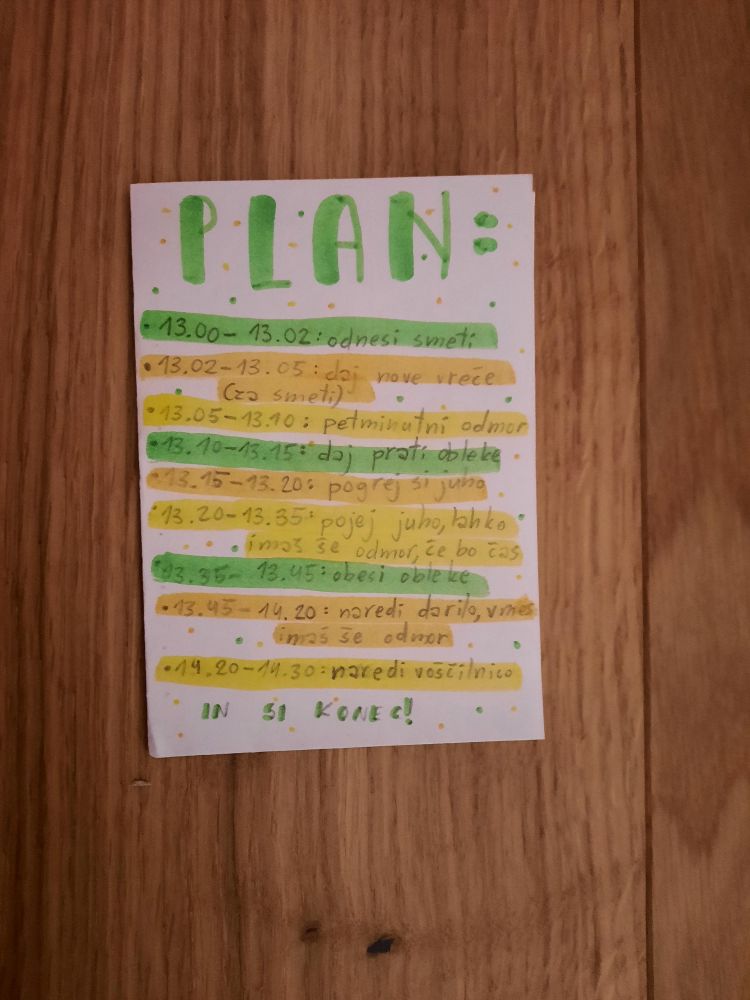 PLAN:
• 13.00 - 13.02: odnesi smeti
• 13.02 - 13.05: daj nove vreče
(za smeti)
• 13.05 - 13.10: petminutni odmor
• 13.10 - 13.15: daj prati obleke
• 13.15 - 13.20: pogrej si juho
• 13.20 - 13.35: pojej juho, lahko
imaš še odmor, če bo čas
• 13.35 - 13.45: obesi obleke
• 13.45 - 14.20: naredi darilo, vmes
imaš še odmor
• 14.20 - 14.30: naredi voščilnico
IN SI KONEC!